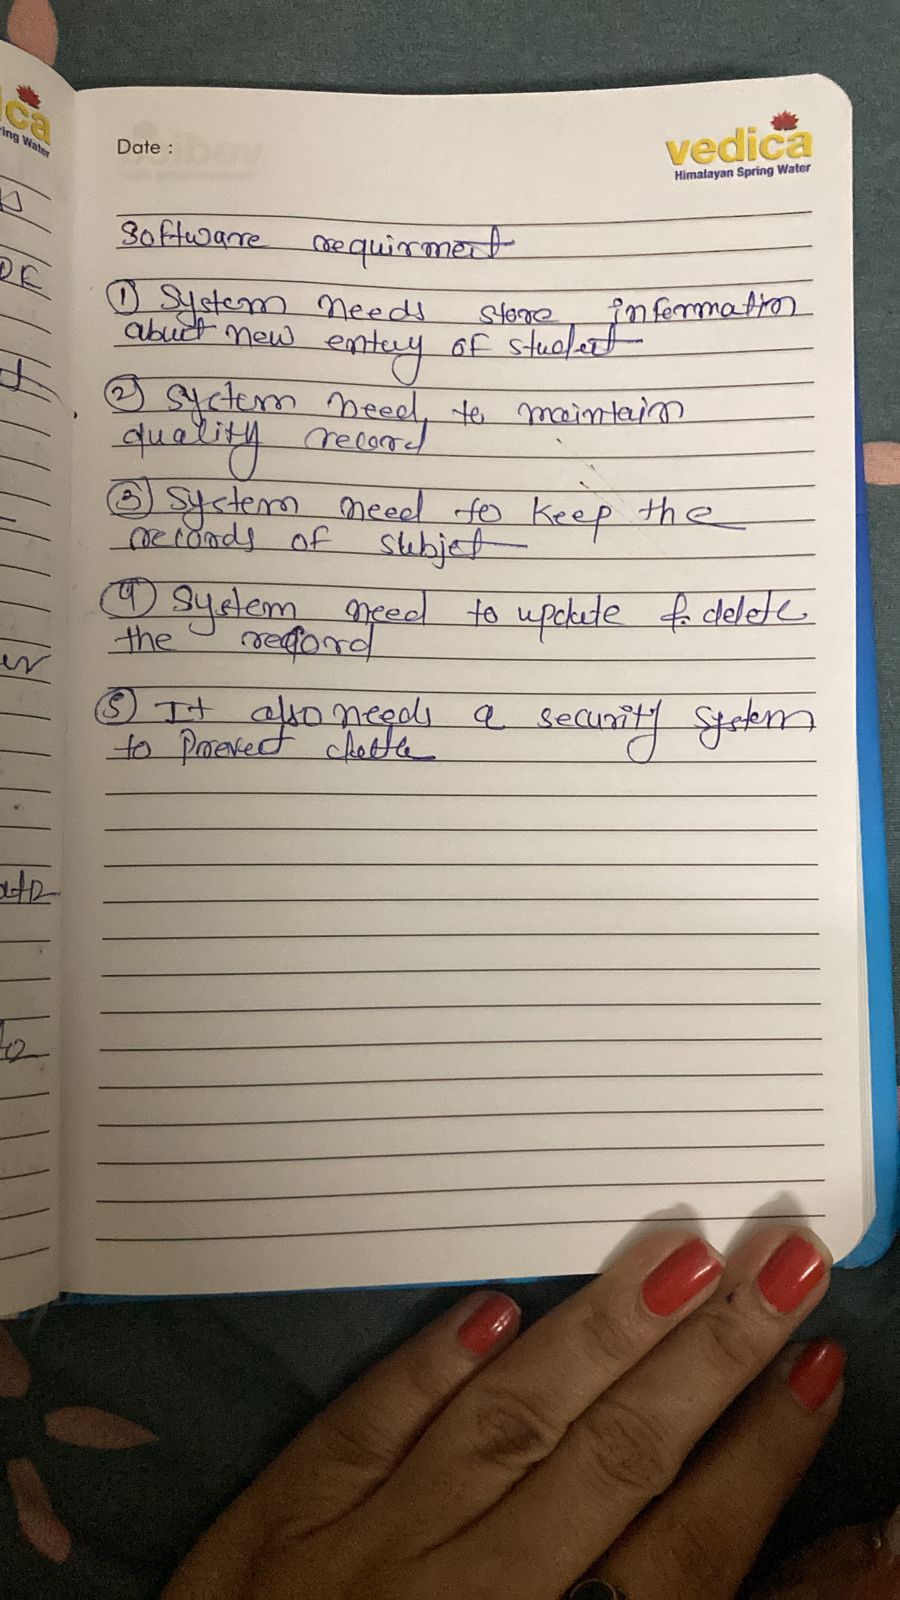 ca
ring Water
Date :
vedica
Himalayan Spring Water
Software requirment
① System needs store information
abuct new entry of student
② System need to maintain
quality record
③ System need to keep the
records of subjet
④ System need to update & delete
the record
⑤ It also needs a security system
to prevect